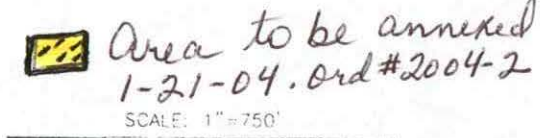 Area to be annexed
1-21-04. Ord #2004-2
SCALE: 1"=750'